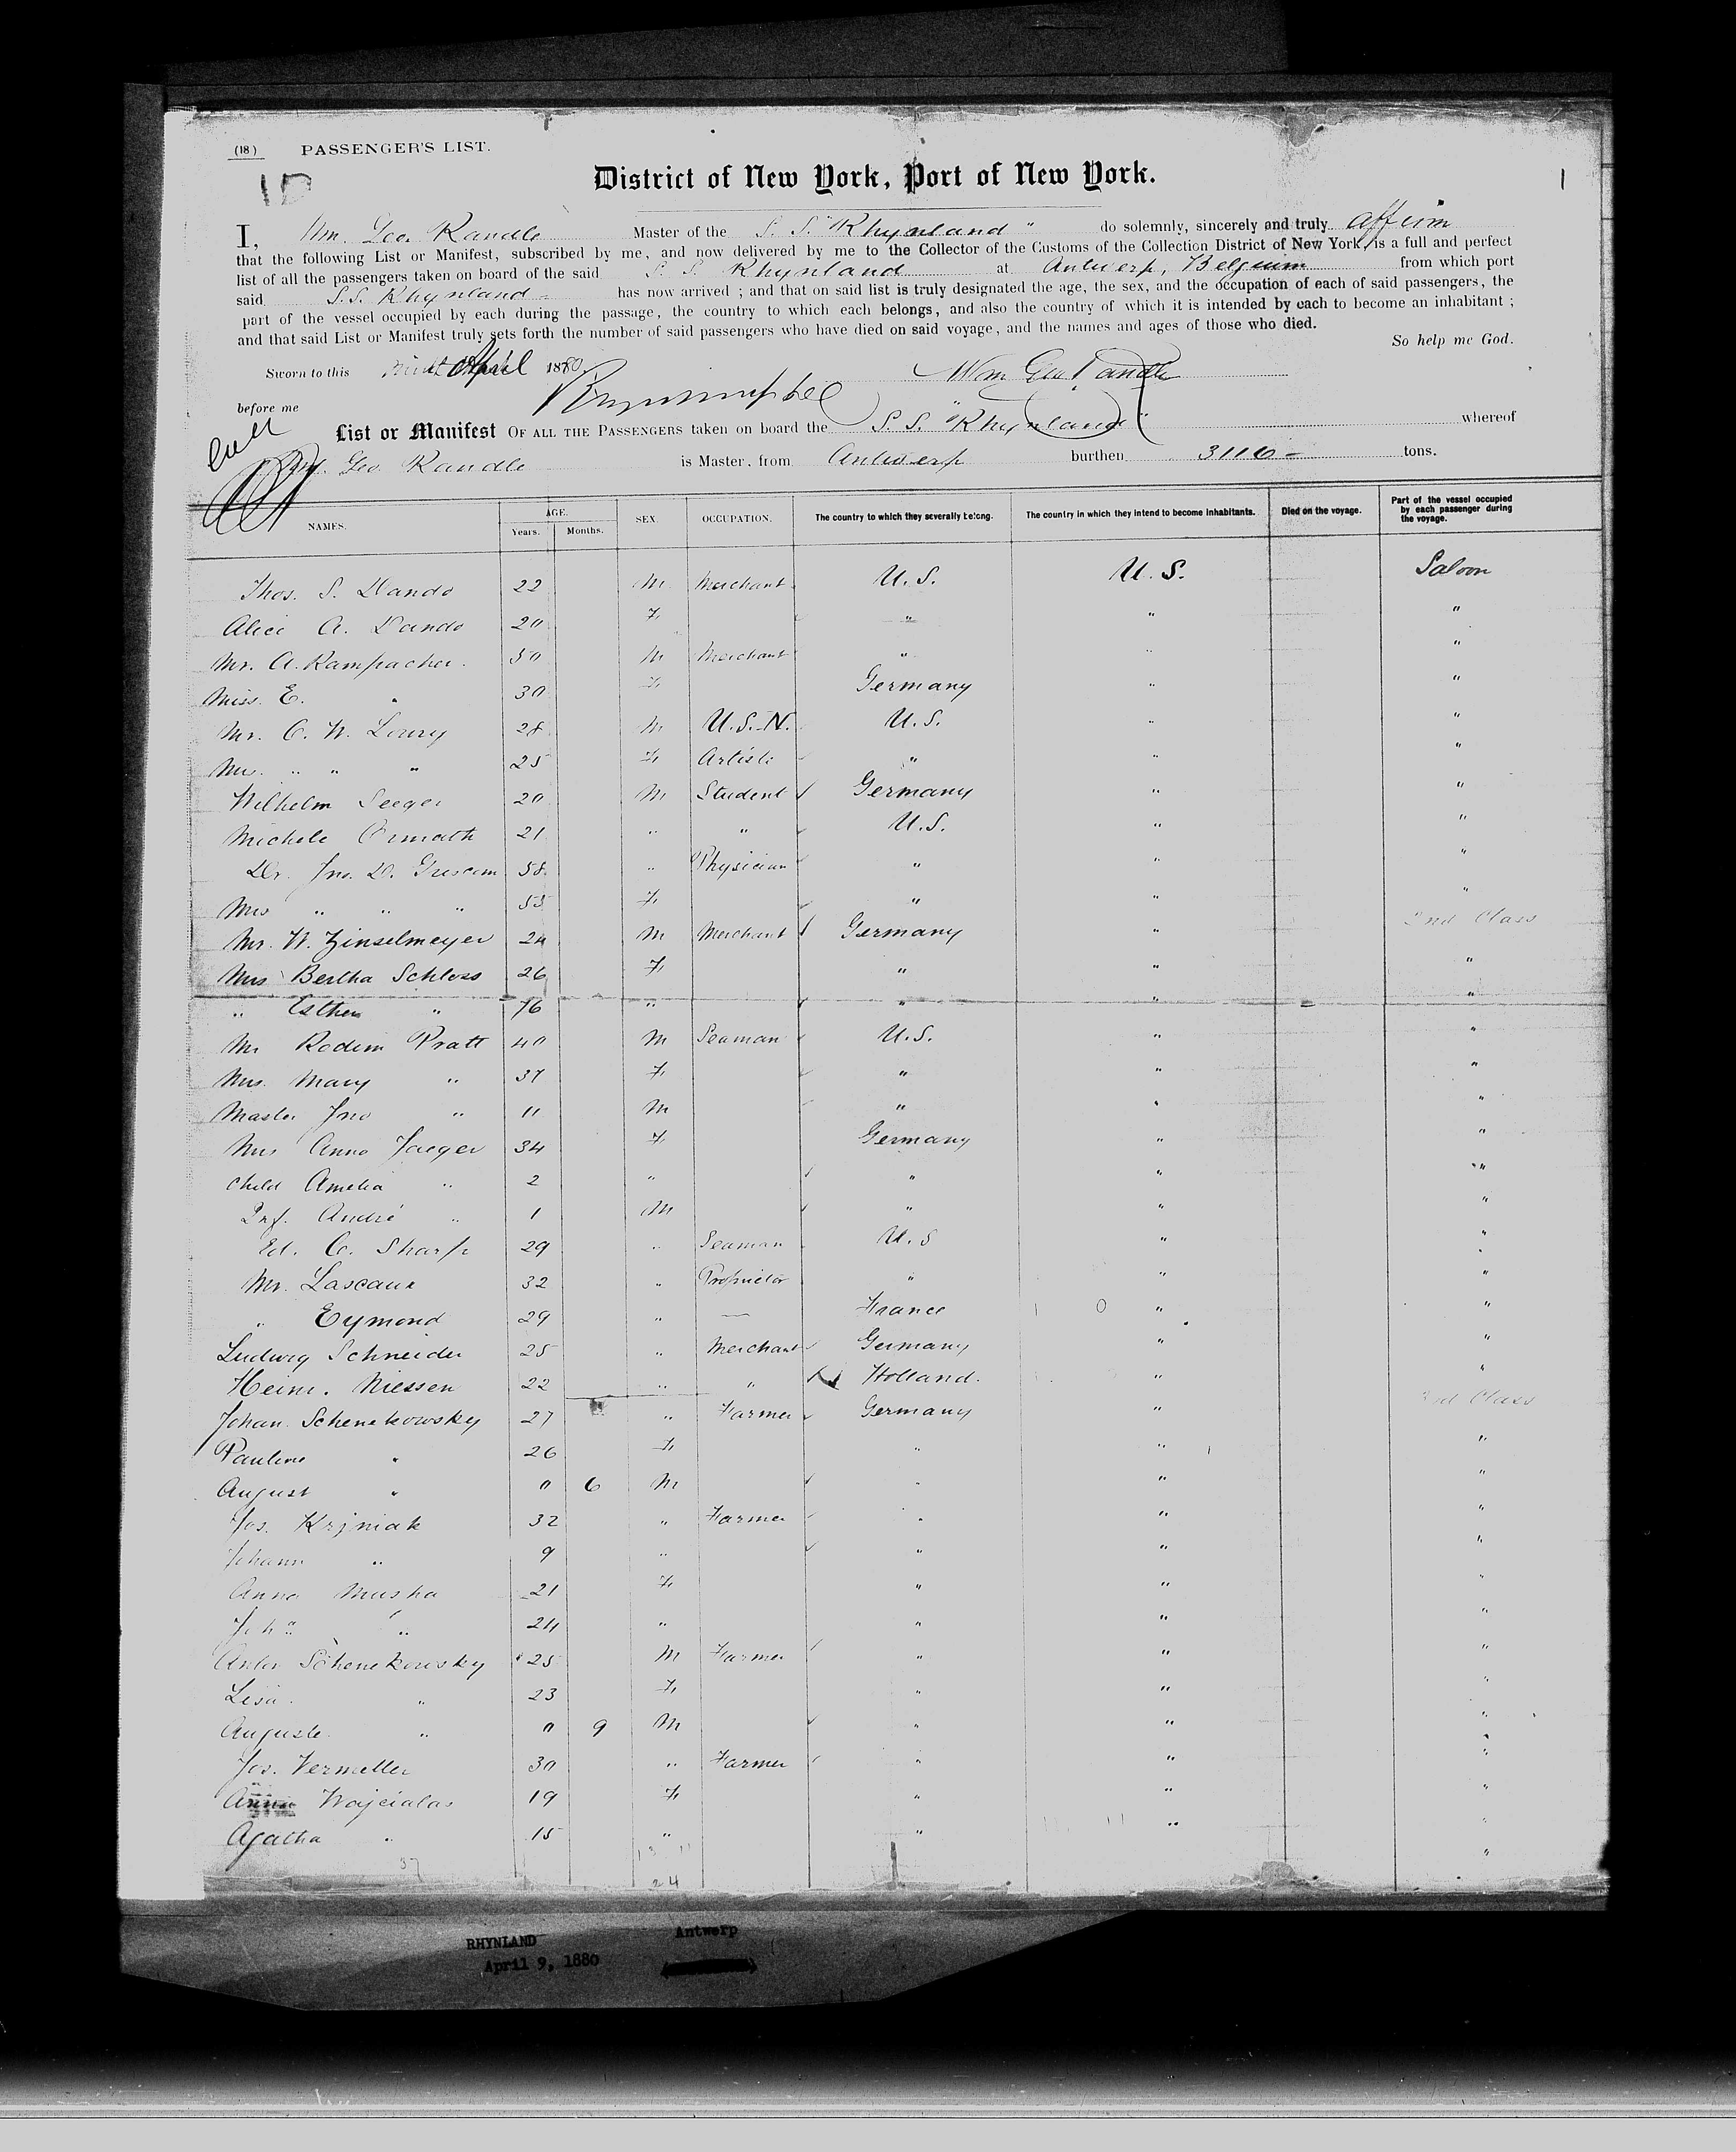 (18) PASSENGER'S LIST.
1
District of New York, Port of New York.
I, Wm. Geo. Randle Master of the S. S. "Rhynland" do solemnly, sincerely and truly affirm
that the following List or Manifest, subscribed by me, and now delivered by me to the Collector of the Customs of the Collection District of New York, is a full and perfect
list of all the passengers taken on board of the said S. S. Rhynland at Antwerp, Belgium from which port
said S.S. Rhynland has now arrived ; and that on said list is truly designated the age, the sex, and the occupation of each of said passengers, the
part of the vessel occupied by each during the passage, the country to which each belongs, and also the country of which it is intended by each to become an inhabitant ;
and that said List or Manifest truly sets forth the number of said passengers who have died on said voyage, and the names and ages of those who died.
So help me God.
Sworn to this April 1880 Wm Geo Randle
before me
List or Manifest OF ALL THE PASSENGERS taken on board the S. S. "Rhynland" whereof
Geo. Randle is Master, from Antwerp burthen 3116 - tons.
NAMES. AGE. Years. Months. SEX. OCCUPATION. The country to which they severally belong. The country in which they intend to become inhabitants. Died on the voyage. Part of the vessel occupied by each passenger during the voyage.
Thos. S. Dando 22 M Merchant U. S. U. S. Saloon
Alice A. Dando 20 F " " "
Mr. A. Rampacher. 50 M Merchant " " "
Miss. E. " 30 F Germany " "
Mr. O. W. Lowry 28 M U.S.N. U.S. " "
Mrs. " " " 25 F Artiste " " "
Wilhelm Seeger 20 M Student Germany " "
Michele Ormath 21 " " U.S. " "
Dr. Jno. D. Griscom 58 " Physician " " "
Mrs " " " 55 F " " "
Mr. W. Zinselmeyer 24 M Merchant Germany " 2nd Class
Mrs Bertha Schloss 26 F " " "
" Esther " 76 " " " "
Mr Rodim Pratt 40 M Seaman U.S. " "
Mrs. Mary " 37 F " " "
Master Jno " 11 M " " "
Mrs Anna Jaeger 34 F Germany " "
Child Amelia " 2 " " " "
Inf. André " 1 M " " "
Ed. C. Sharp 29 " Seaman U.S " "
Mr. Lascaux 32 " Proprietor " " "
" Eymond 29 " — France " "
Ludwig Schneider 25 " Merchant Germany " "
Heinr. Niessen 22 " " Holland. " "
Johan. Schenekowsky 27 " Farmer Germany " 3rd Class
Pauline " 26 F " " "
August " 0 6 M " " "
Jos. Krjniak 32 " Farmer " " "
Johann " 9 " " " "
Anna Musha 21 F " " "
Joh " 24 " " " "
Anton Schenekowsky 25 M Farmer " " "
Lisa " 23 F " " "
Auguste " 0 9 M " " "
Jos. Vermeller 30 " Farmer " " "
Anna Wojcialas 19 F " " "
Agatha " 15 " " " "
37
24
RHYNLAND Antwerp
April 9, 1880